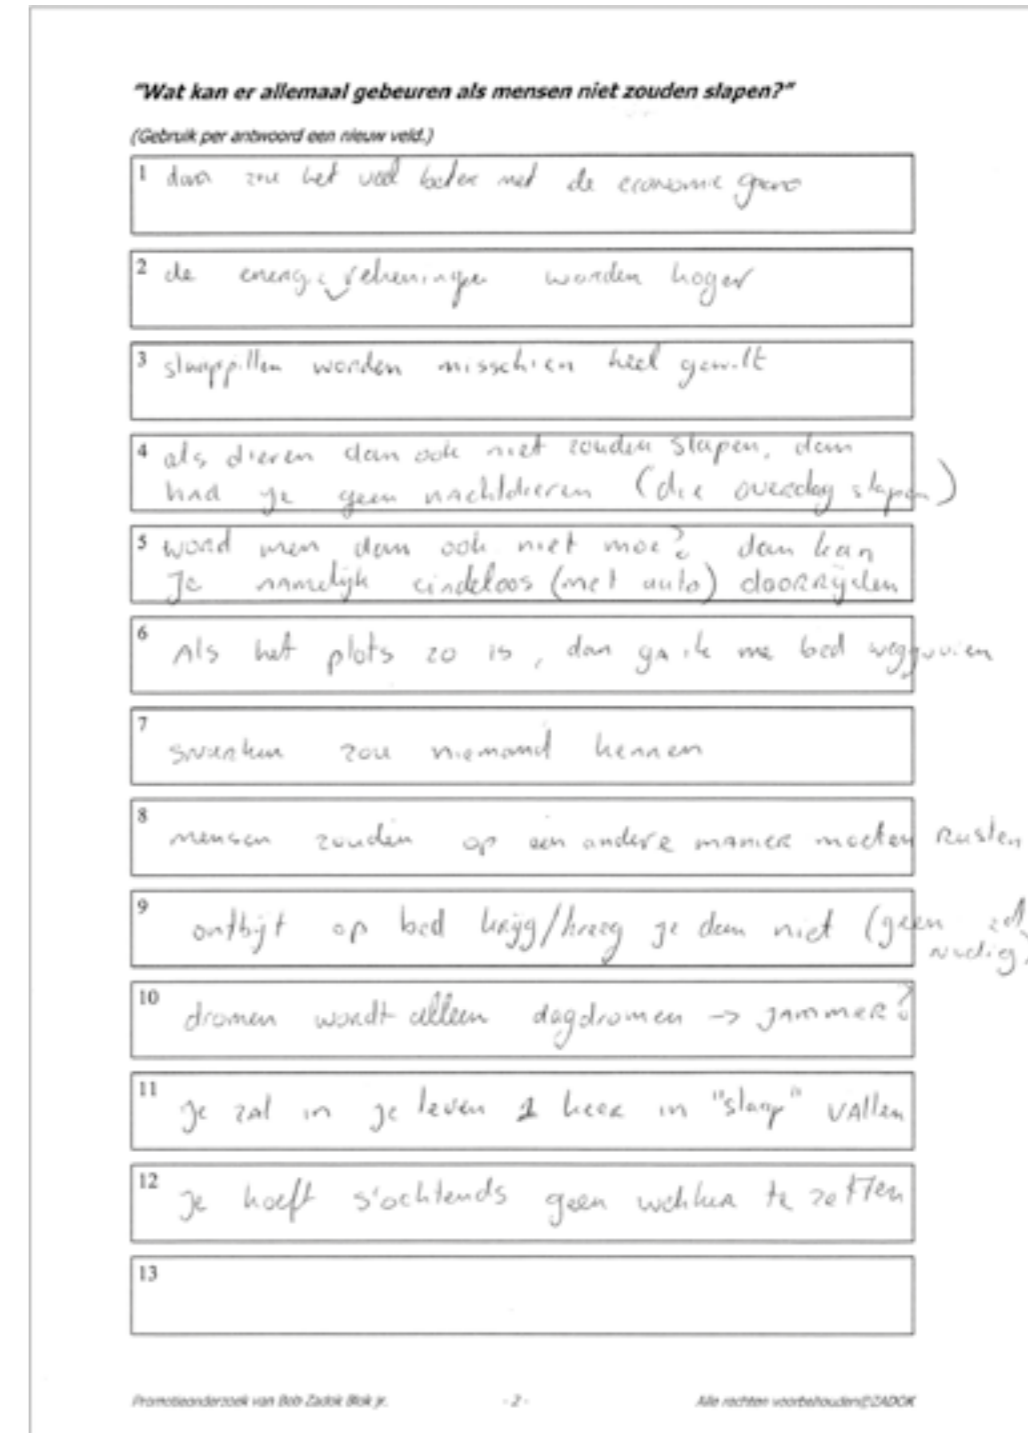 "Wat kan er allemaal gebeuren als mensen niet zouden slapen?"
(Gebruik per antwoord een nieuw veld.)
1 dan zou het veel beter met de economie gaan
2 de energie rekeningen worden hoger
3 slaappillen worden misschien heel gewilt
4 als dieren dan ook niet zouden slapen, dan
had je geen nachtdieren (die overdag slapen)
5 word men dan ook niet moe? dan kan
je namelijk eindeloos (met auto) doorrijden
6 Als het plots zo is, dan ga ik me bed weggooien
7 snurken zou niemand kennen
8 mensen zouden op een andere manier moeten rusten
9 ontbijt op bed krijg/kreeg je dan niet (geen
nodig)
10 dromen wordt alleen dagdromen -> jammer?
11 je zal in je leven 1 keer in "slaap" vallen
12 je hoeft s'ochtends geen wekker te zetten
13
Promotieonderzoek van Bob Zadok Blok jr.
- 2 -
Alle rechten voorbehouden©ZADOK